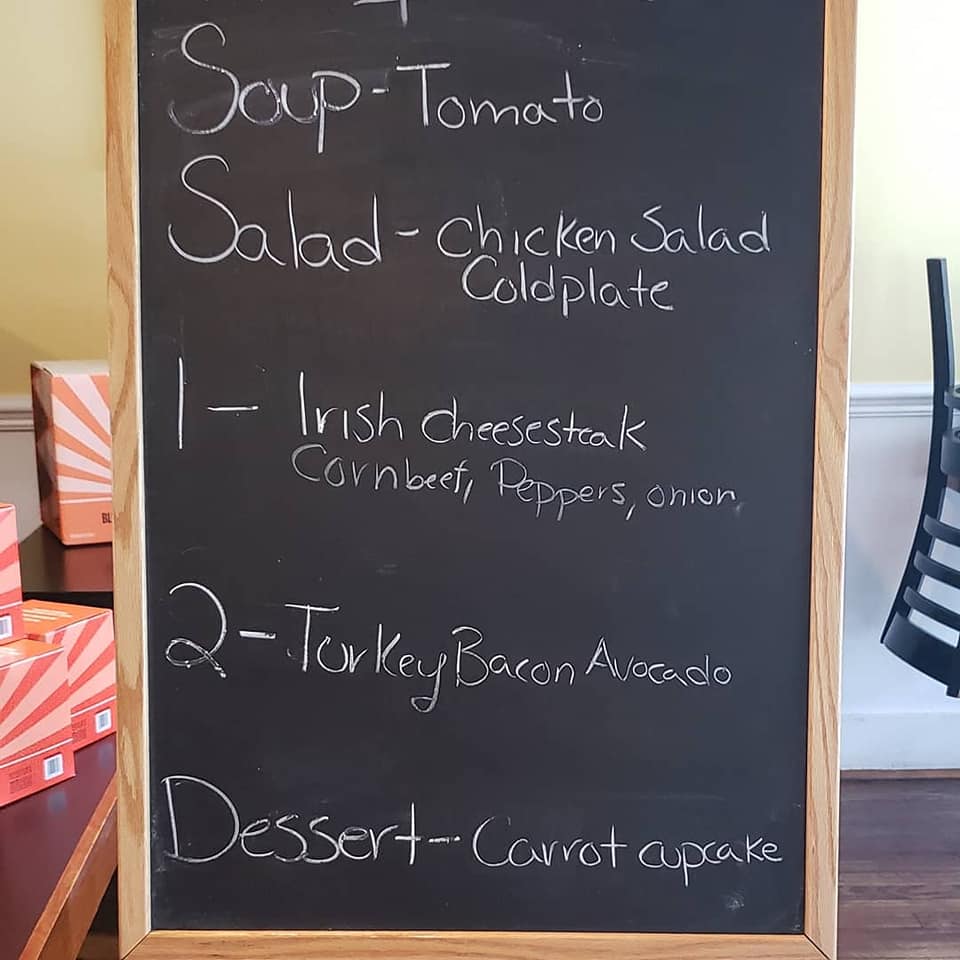 Soup - Tomato
Salad - Chicken Salad
Coldplate
1 - Irish Cheesesteak
Cornbeef, Peppers, onion
2 - Turkey Bacon Avocado
Dessert - Carrot cupcake
BL